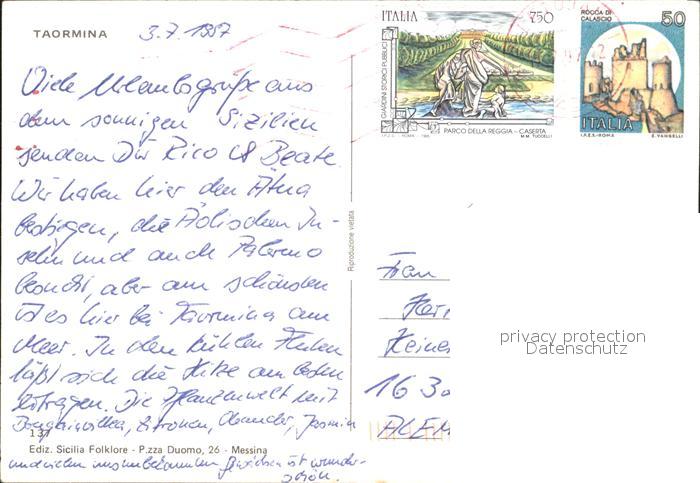 TAORMINA
3.7.1997
Viele Urlaubsgrüße aus
dem sonnigen Sizilien
senden Dir Rico & Beate.
Wir haben hier den Ätna
bestiegen, die Äolischen In-
seln und auch Palermo
besucht, aber am schönsten
ist es hier bei Taormina am
Meer. In den kühlen Fluten
läßt sich die Hitze am besten
ertragen. Die Pflanzenwelt mit
Bougainvillea, Zitronen, Oleander, Jasmin
und vielen uns unbekannten Gewächsen ist wunder-
schön.
137
Ediz. Sicilia Folklore - P.zza Duomo, 26 - Messina
Riproduzione vietata
ITALIA 750
GIARDINI STORICI PUBBLICI
PARCO DELLA REGGIA - CASERTA
I.P.Z.S. - ROMA
M.M. TUCCELLI
ROCCA DI
CALASCIO
50
ITALIA
I.P.Z.S.-ROMA E. VANGELLI
Frau
Heine
privacy protection
Datenschutz
16 30
ALEM